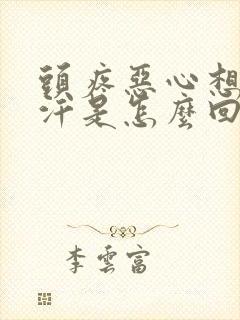 頭疼惡心想
汗是怎麼回
李雲富